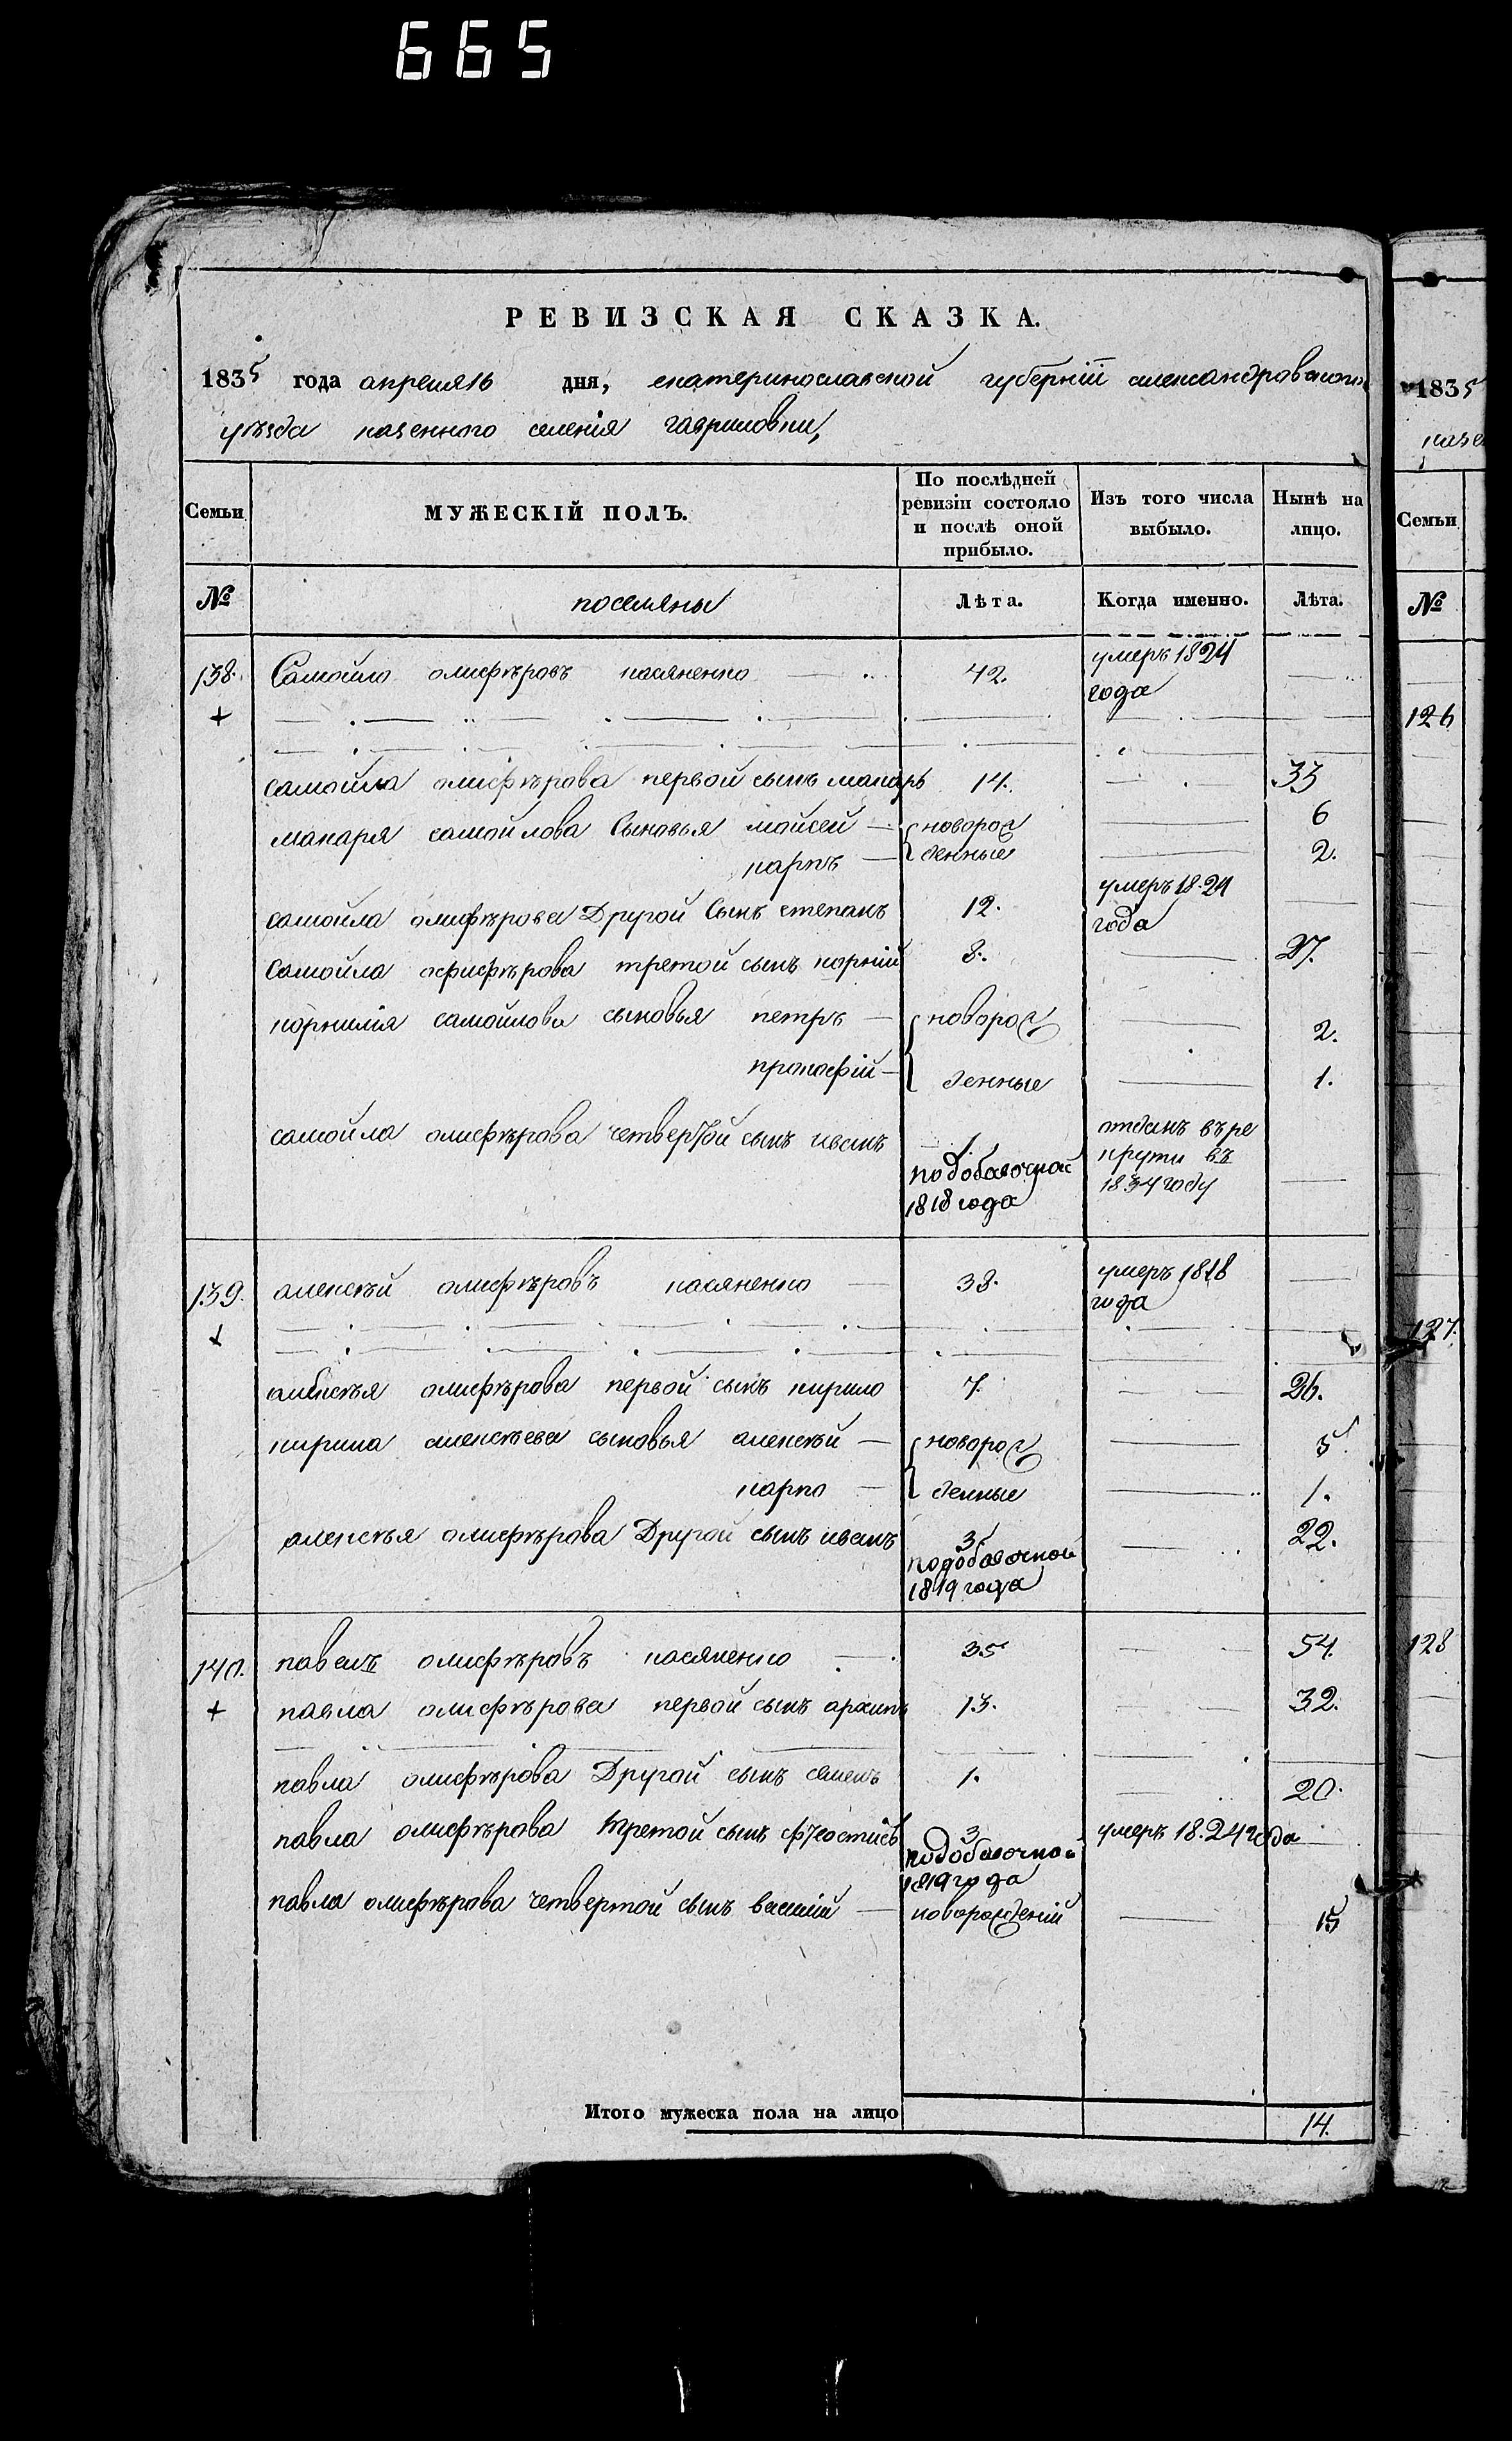 665
РЕВИЗСКАЯ СКАЗКА.
1835 года апреля 16 дня, екатеринославской губерніи александровского
уѣзда казенного селенія гавриловки,
Семьи
МУЖЕСКІЙ ПОЛЪ.
По послѣдней ревизіи состояло и послѣ оной прибыло.
Изъ того числа выбыло.
Нынѣ на лицо.
№ поселяны Лѣта. Когда именно. Лѣта.
138. Самойло олифѣровъ касяненко 42. умеръ 1824 года
самойла олифѣрова первой сынъ макаръ 14. 33
макаря самойлова Сыновья мойсей новорож 6
карпъ денные 2.
самойла олифѣрова Другой Сынъ степанъ 12. умеръ 18.24 года
самойла офифѣрова третой сынъ корній 8. 27.
корнилія самойлова сыновья петръ новорож 2.
прокофій денные 1.
самойла олифѣрова четвертой сынъ иванъ 1 подобавочной 1818 года отданъ въ ре крути въ 1834 году
139. алексѣй олифѣровъ касяненко 38. умеръ 1818 года
алексѣя олифѣрова первой сынъ кирило 7. 26.
кирила алексѣева сыновья алексѣй новорож 5.
карпо денные 1.
алексѣя олифѣрова Другой сынъ иванъ 3 подобавочной 1819 года 22.
140. павелъ олифѣровъ касяненко 35 54.
павла олифѣрова первой сынъ архипъ 13. 32.
павла олифѣрова Другой сынъ семенъ 1. 20.
павла олифѣрова третой сынъ 3 подобавочной 1819 года умеръ 18.24 года
павла олифѣрова четвертой сынъ василій новорожденій 15
Итого мужеска пола на лицо 14.
1835
Семьи
№
126
127.
128